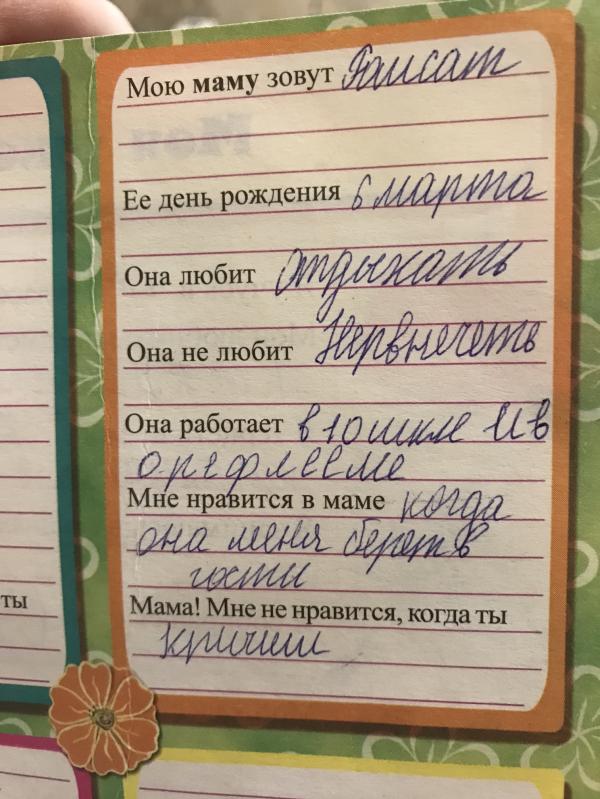 Мою маму зовут Раисат
Ее день рождения 6 марта
Она любит отдыхать
Она не любит Нервнечеть
Она работает в 10 шкле И в
орефлееме
Мне нравится в маме когда
она меня берет в
гости
ты
Мама! Мне не нравится, когда ты
кричиш